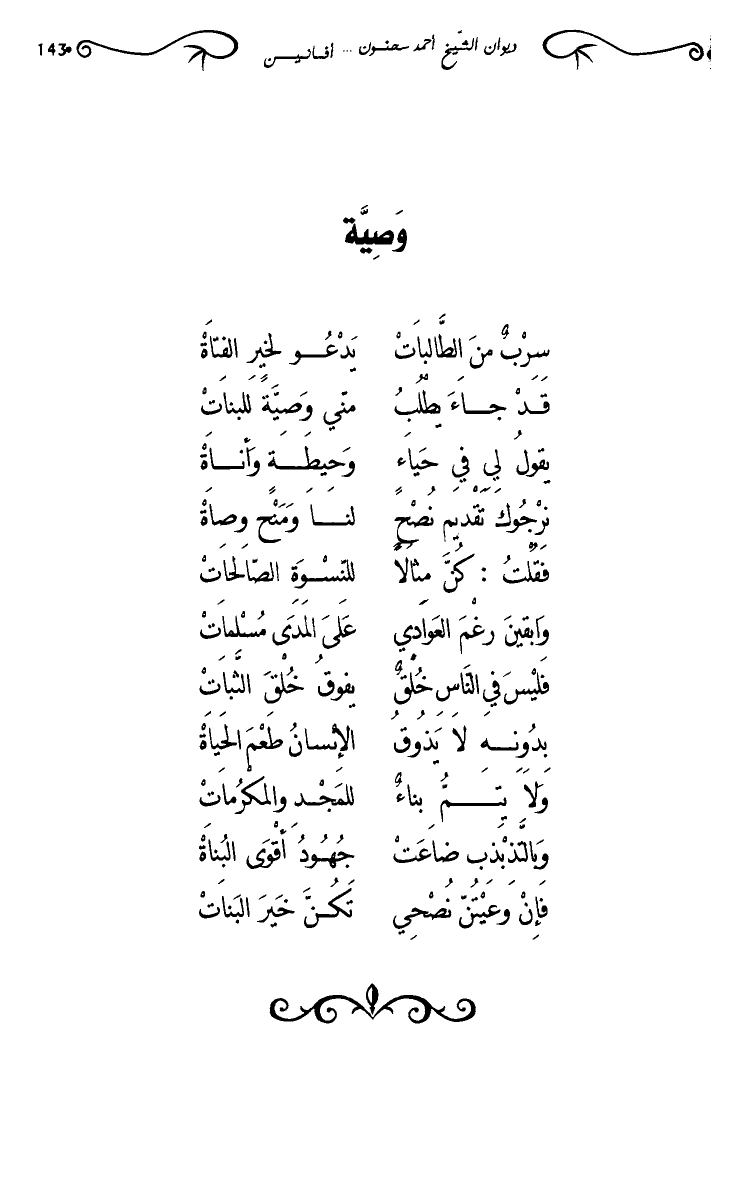 ديوان الشّيخ أحمد سحنون ... أفانين 143
وَصِيَّة
سِرْبٌ منَ الطَّالباتْ يَدْعُو لخيرِ الفتَاةْ
قَدْ جاءَ يطلُبُ منّي وَصيَّةً للبناتْ
يقولُ لِي فِي حَيَاء وَحِيطَةٍ وأَناةْ
نرْجُوكَ تَقْديمَ نُصْحٍ لنا وَمَنْحِ وصاةْ
فقلْتُ : كُنَّ مِثالاً للنّسْوَةِ الصّالحاتْ
وَابقينَ رغْمَ العَوَادِي عَلىَ المَدَى مُسْلِماتْ
فَليْسَ في النّاسِ خُلْقٌ يفوقُ خُلْقَ الثَّباتْ
بِدُونِهِ لاَ يَذُوقُ الإنْسانُ طَعْمَ الحَياةْ
وَلاَ يَتِمُّ بناءٌ للمَجْدِ والمكْرُماتْ
وَبالتَّذبْذبِ ضاعَتْ جُهُودُ أقْوَى البُناةْ
فَإنْ وعَيْتُنّ نُصْحِي تَكُنَّ خَيرَ البَناتْ